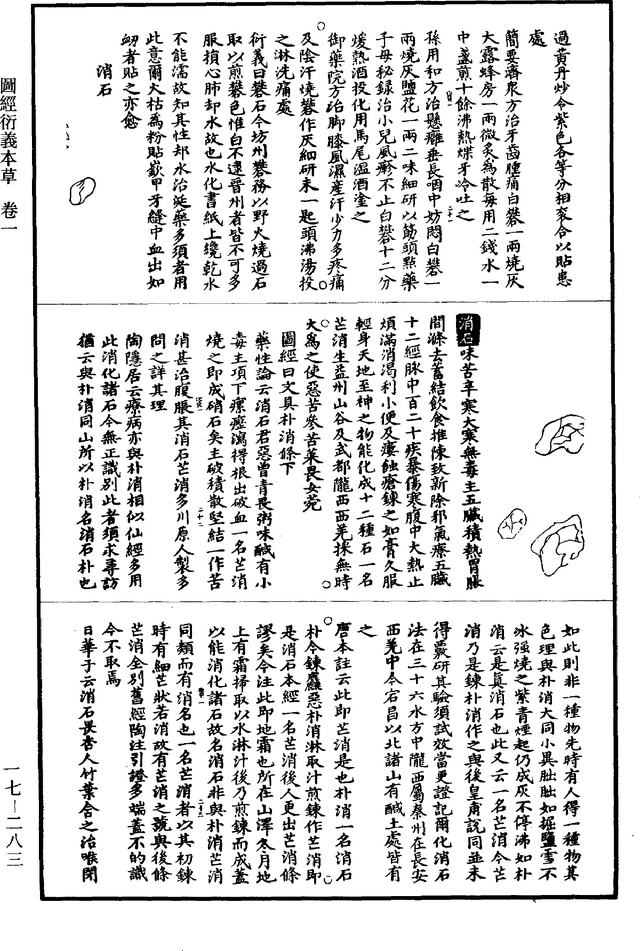 圖經衍義本草　卷一
過黃丹炒令紫色各等分相袞合以貼患
處
簡要濟衆方治牙齒腫痛白礬一兩燒灰
大露蜂房一兩微炙爲散每用二錢水一
中盞煎十餘沸熱煠牙冷吐之
孫用和方治懸癰垂長咽中妨悶白礬一
兩燒灰鹽花一兩二味細研以筯頭點藥
子母秘錄治小兒風瘮不止白礬十二分
煖熱酒投化用馬尾溫酒塗之
御藥院方治脚膝風濕虛汗少力多疼痛
及陰汗燒礬作灰細研末一匙頭沸湯投
之淋洗痛處
衍義曰礬石今坊州礬務以野火燒過石
取以煎礬色惟白不逮晉州者皆不可多
服損心肺却水故也水化書紙上纔乾水
不能濡故知其性却水治涎藥多須者用
此意爾火枯爲粉貼嵌甲牙縫中血出如
衂者貼之亦愈
消石
消石味苦辛寒大寒無毒主五臟積熱胃脹
閉滌去蓄結飲食推陳致新除邪氣療五臟
十二經脉中百二十疾暴傷寒腹中大熱止
煩滿消渴利小便及瘻蝕瘡鍊之如膏久服
輕身天地至神之物能化成十二種石一名
芒消生益州山谷及武都隴西西羌採無時
大爲之使惡苦參苦菜畏女菀
圖經曰文具朴消條下
藥性論云消石君惡曾青畏粥味鹹有小
毒主項下瘰癧瀉得根出破血一名芒消
燒之即成硝石矣主破積散堅結一作苦
消甚治腹脹其消石芒消多川原人製多
問之詳其理
陶隱居云療病亦與朴消相似仙經多用
此消化諸石今無正識別此者須求尋訪
猶云與朴消同山所以朴消名消石朴也
如此則非一種物先時有人得一種物其
色理與朴消大同小異朏朏如握鹽雪不
冰強燒之紫青煙起仍成灰不停沸如朴
消云是眞消石也此又云一名芒消今芒
消乃是鍊朴消作之與後皇甫說同並未
得覈研其驗須試效當更證記爾化消石
法在三十六水方中隴西屬秦州在長安
西羌中今宕昌以北諸山有鹹土處皆有
之
唐本註云此即芒消是也朴消一名消石
朴今鍊麤惡朴消淋取汁煎鍊作芒消即
是消石本經一名芒消後人更出芒消條
謬矣今注此即地霜也所在山澤冬月地
上有霜掃取以水淋汁後乃煎鍊而成蓋
以能消化諸石故名消石非與朴消芒消
同類而有消名也一名芒消者以其初鍊
時有細芒狀若消故有芒消之號與後條
芒消全別舊經陶注引證多端蓋不的識
今不取焉
日華子云消石畏杏人竹葉含之治喉閉
一七－二八三